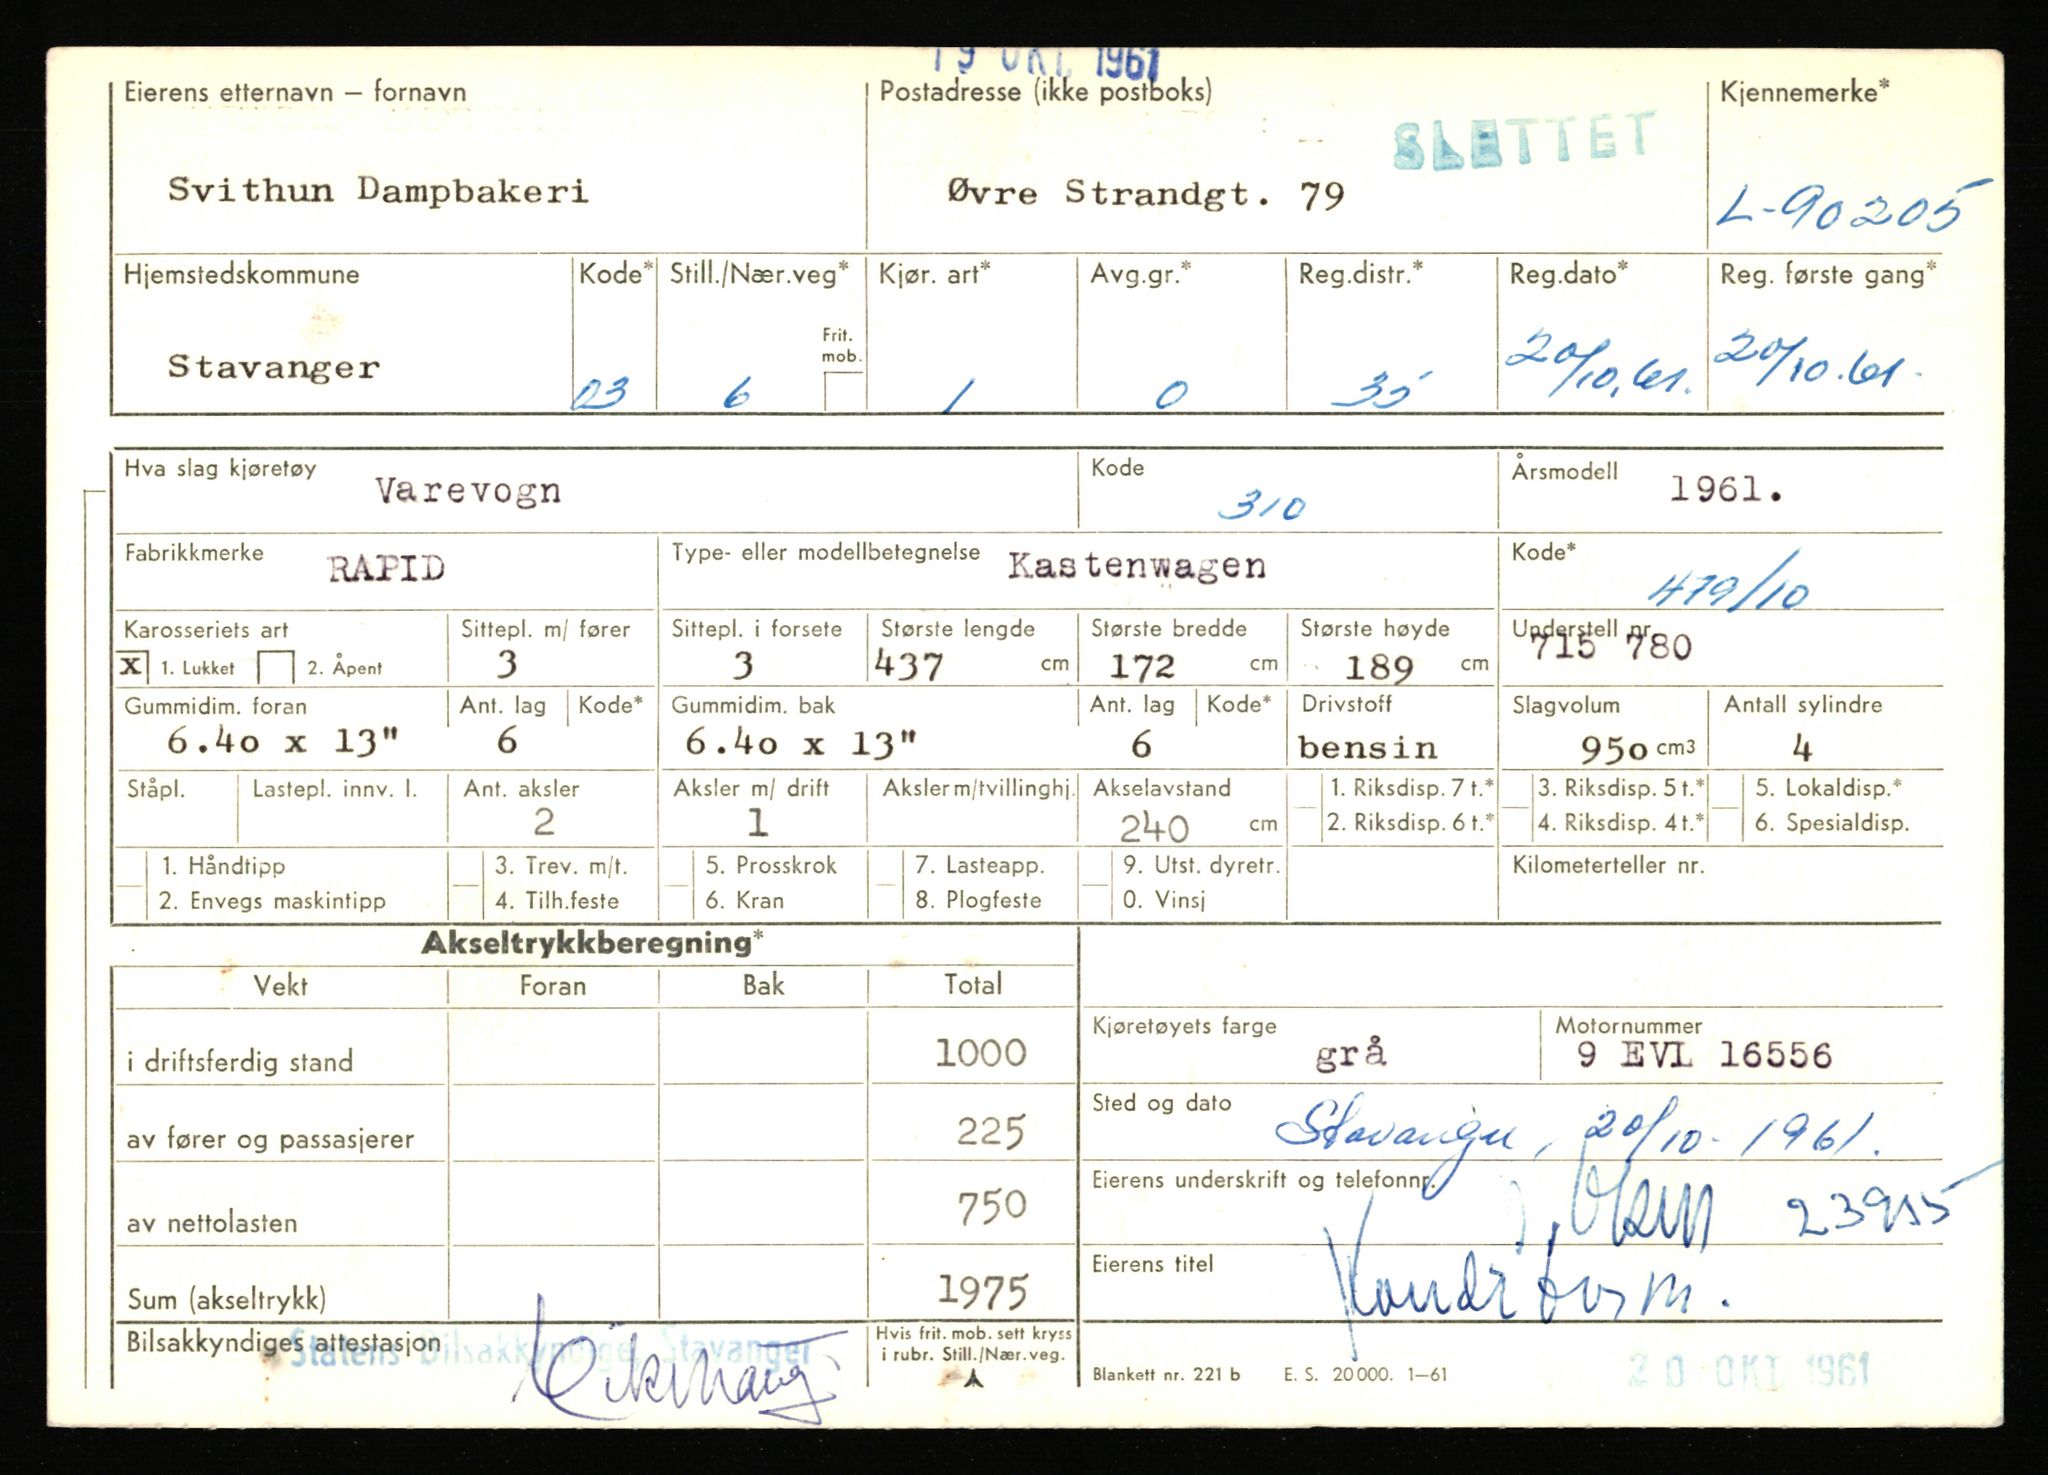 19 OKT. 1961
Eierens etternavn – fornavn
Svithun Dampbakeri
Postadresse (ikke postboks)
Øvre Strandgt. 79
SLETTET
Kjennemerke*
L-90205
Hjemstedskommune
Stavanger
Kode*
03
Still./Nær.veg*
6
Frit.
mob.
Kjør. art*
1
Avg.gr.*
0
Reg.distr.*
35
Reg.dato*
20/10.61.
Reg. første gang*
20/10.61.
Hva slag kjøretøy
Varevogn
Kode
310
Årsmodell
1961.
Fabrikkmerke
RAPID
Type- eller modellbetegnelse
Kastenwagen
Kode*
479/10
Karosseriets art
x 1. Lukket 2. Åpent
Sittepl. m/ fører
3
Sittepl. i forsete
3
Største lengde
437 cm
Største bredde
172 cm
Største høyde
189 cm
Understell nr.
715 780
Gummidim. foran
6.4o x 13"
Ant. lag
6
Kode*
Gummidim. bak
6.4o x 13"
Ant. lag
6
Kode*
Drivstoff
bensin
Slagvolum
95o cm3
Antall sylindre
4
Ståpl.
Lastepl. innv. l.
Ant. aksler
2
Aksler m/ drift
1
Aksler m/tvillinghj.
Akselavstand
240 cm
1. Riksdisp. 7 t.*
2. Riksdisp. 6 t.*
3. Riksdisp. 5 t.*
4. Riksdisp. 4 t.*
5. Lokaldisp.*
6. Spesialdisp.
1. Håndtipp
2. Envegs maskintipp
3. Trev. m/t.
4. Tilh.feste
5. Prosskrok
6. Kran
7. Lasteapp.
8. Plogfeste
9. Utst. dyretr.
0. Vinsj
Kilometerteller nr.
Akseltrykkberegning*
Vekt Foran Bak Total
i driftsferdig stand 1000
av fører og passasjerer 225
av nettolasten 750
Sum (akseltrykk) 1975
Kjøretøyets farge
grå
Motornummer
9 EVL 16556
Sted og dato
Stavanger, 20/10-1961.
Eierens underskrift og telefonnr.
Olsen 23955
Eierens titel
Konditorm.
Bilsakkyndiges attestasjon
Statens Bilsakkyndige, Stavanger
Hvis frit. mob. sett kryss
i rubr. Still./Nær.veg.
Blankett nr. 221 b E. S. 20000. 1–61
20 OKT 1961